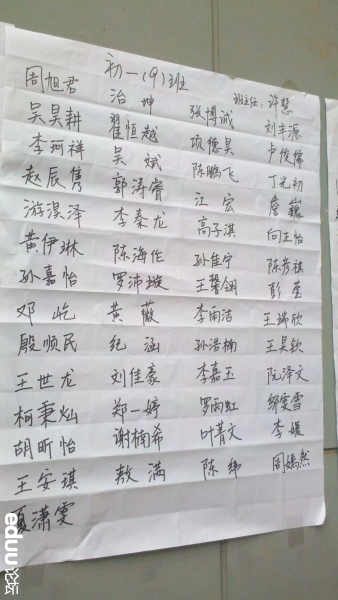 初一(9)班 班主任：许慧
周旭君 治坤 张博诚 刘丰源
吴昊耕 翟恒越 项俊昊 卢俊儒
李珂祥 吴斌 陈鹏飞 丁光初
赵辰隽 郭涛睿 江宏 詹巍
游淏泽 李秦龙 高子淇 向王怡
黄伊琳 陈海作 孙佳宁 陈彦祺
孙嘉怡 罗沛璇 王馨翎 彭莹
邓屹 黄薇 李雨洁 王瑞欣
殷顺民 纪涵 孙浩楠 王昊钦
王世龙 刘佳豪 李嘉玉 阮泽文
柯秉灿 郑一婷 罗雨虹 邹雯雪
胡昕怡 谢楠希 叶菁文 李媛
王安琪 敖满 陈纬 周嫣然
夏潇雯
eduu论坛